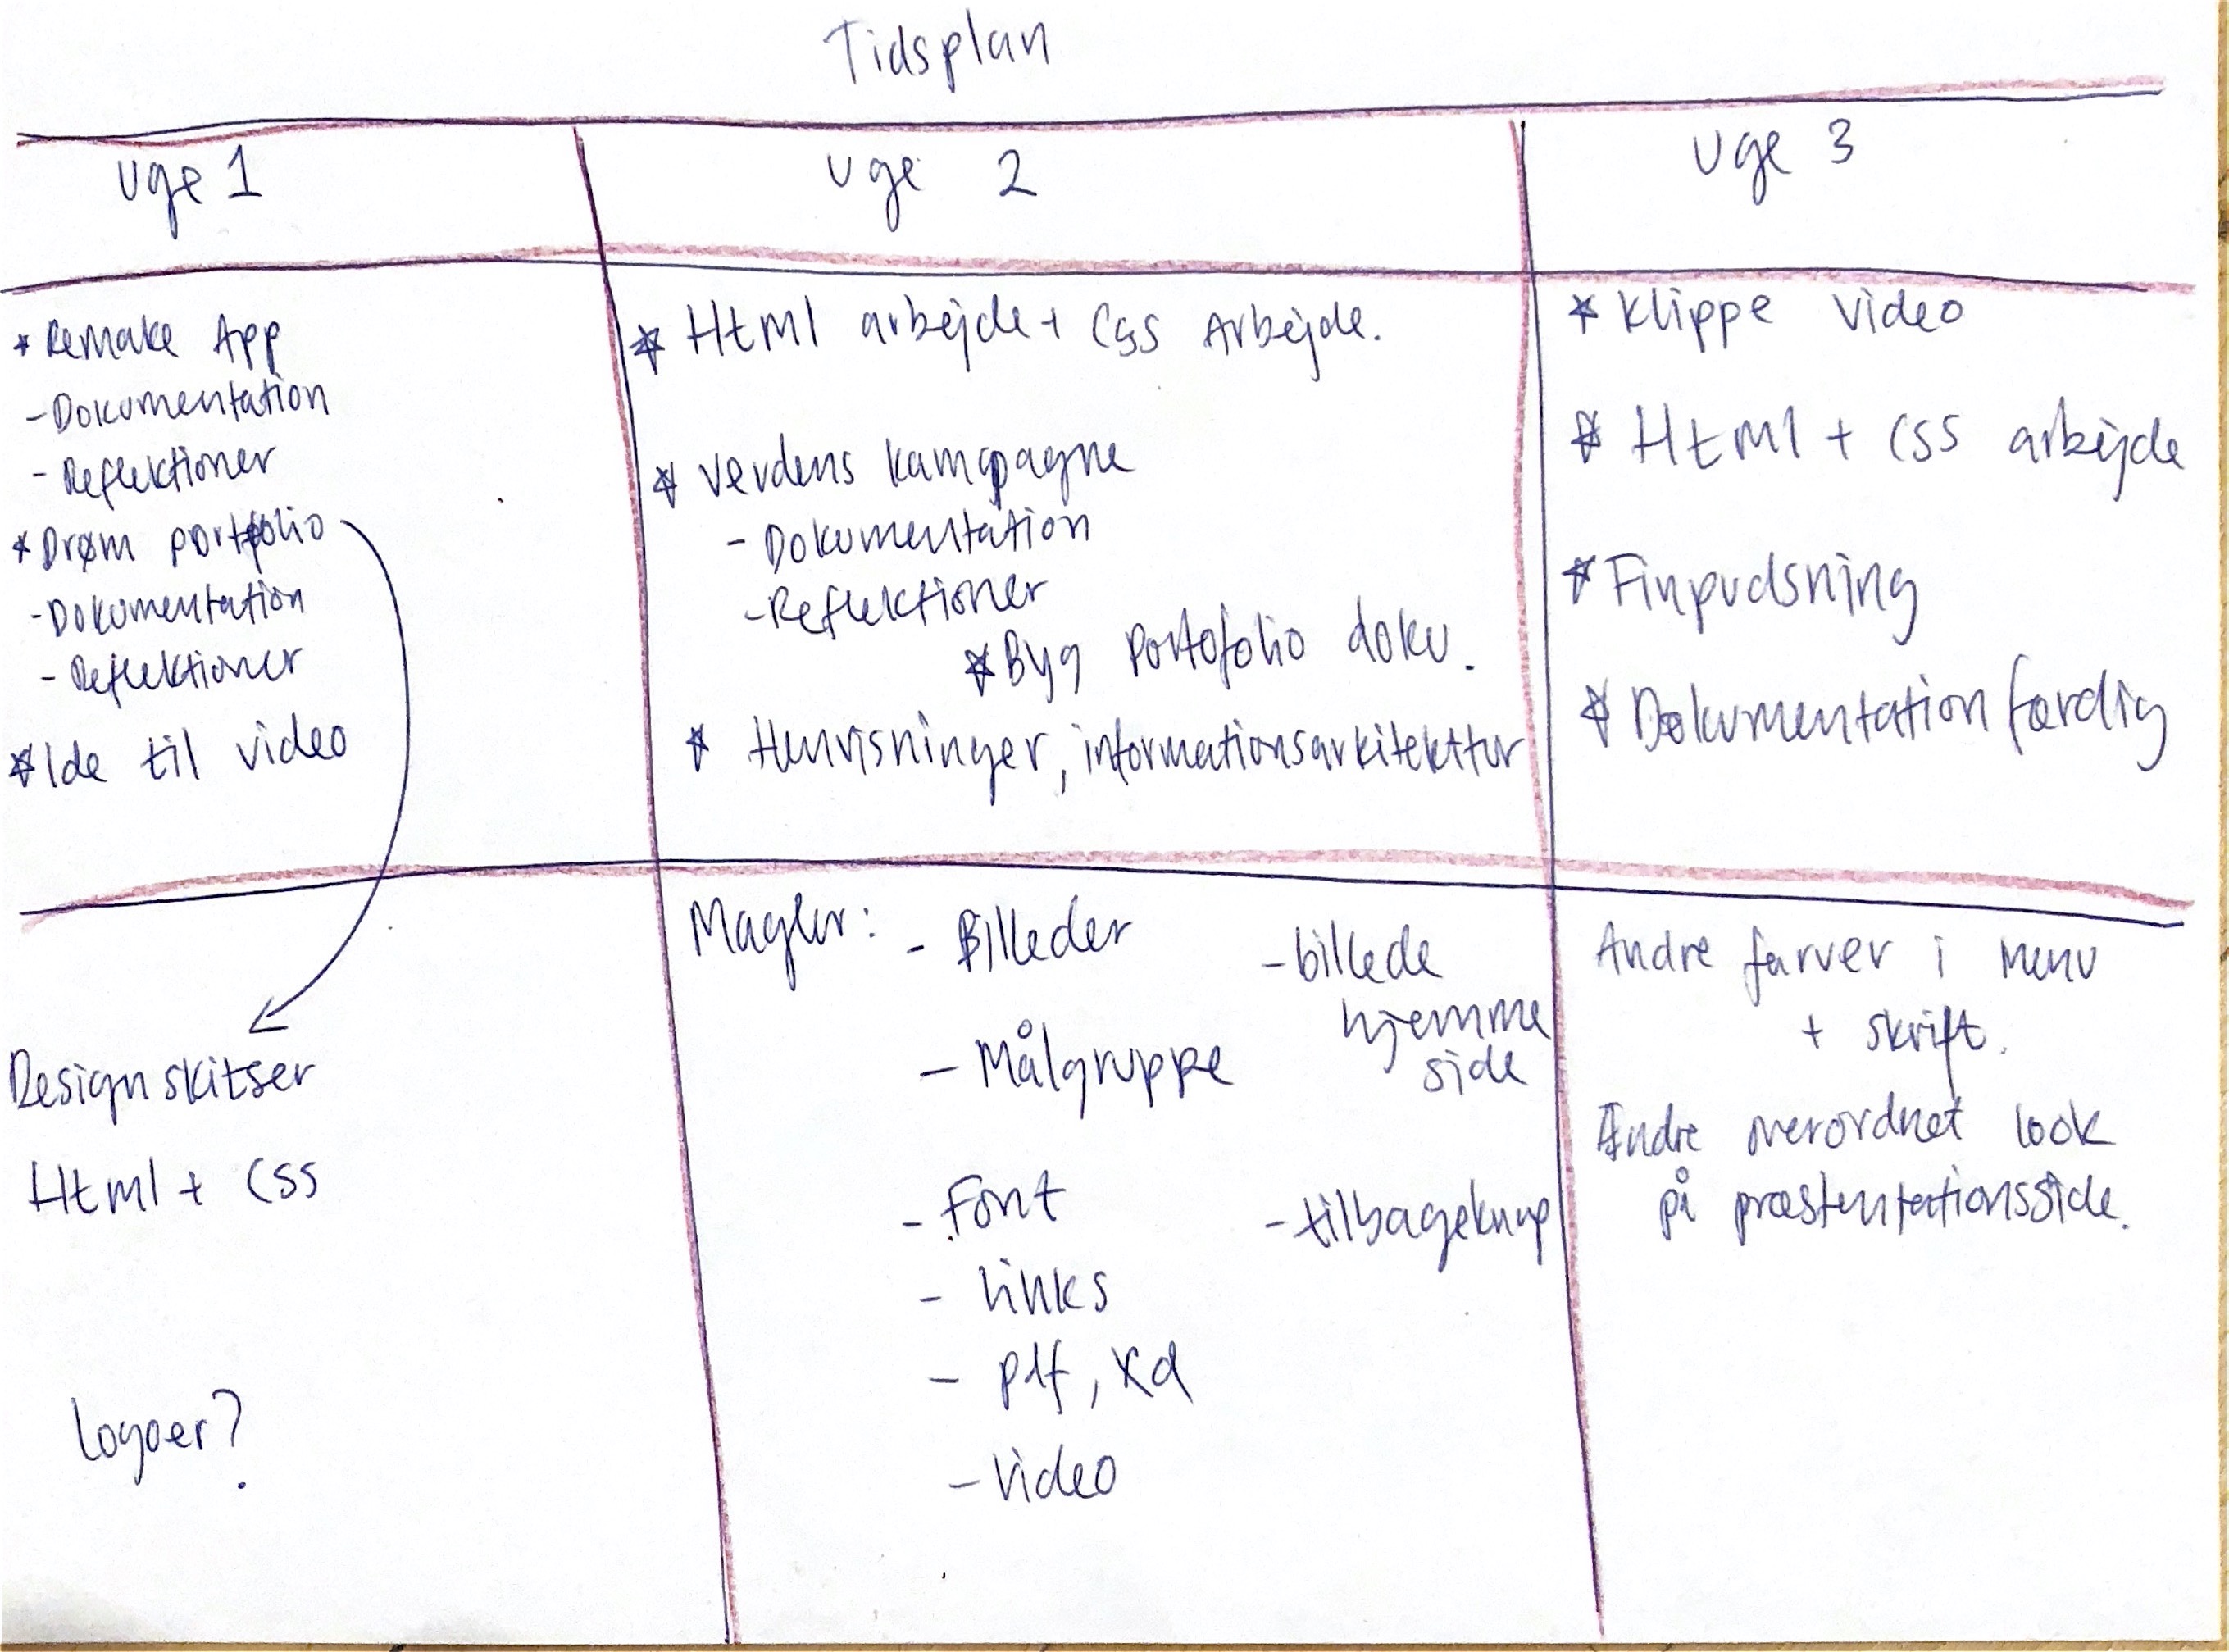 Tidsplan
Uge 1
Uge 2
Uge 3
* Remake App
- Dokumentation
- Reflektioner
* Drøm portfolio
- Dokumentation
- Reflektioner
* Ide til video
* Html arbejde + Css Arbejde.
* Verdens kampagne
- Dokumentation
- Reflektioner
* Byg Portofolio doku.
* Henvisninger, informationsarkitekttur
* Klippe video
* Html + CSS arbejde
* Finpudsning
* Dokumentation færdig
Design skitser
Html + CSS
Logoer?
Magler:
- Billeder
- Målgruppe
- Font
- Links
- pdf, Xd
- Video
- billede
hjemme
side
- tilbageknap
Andre farver i menu
+ skrift.
Ændre overordnet look
på præstentationsside.